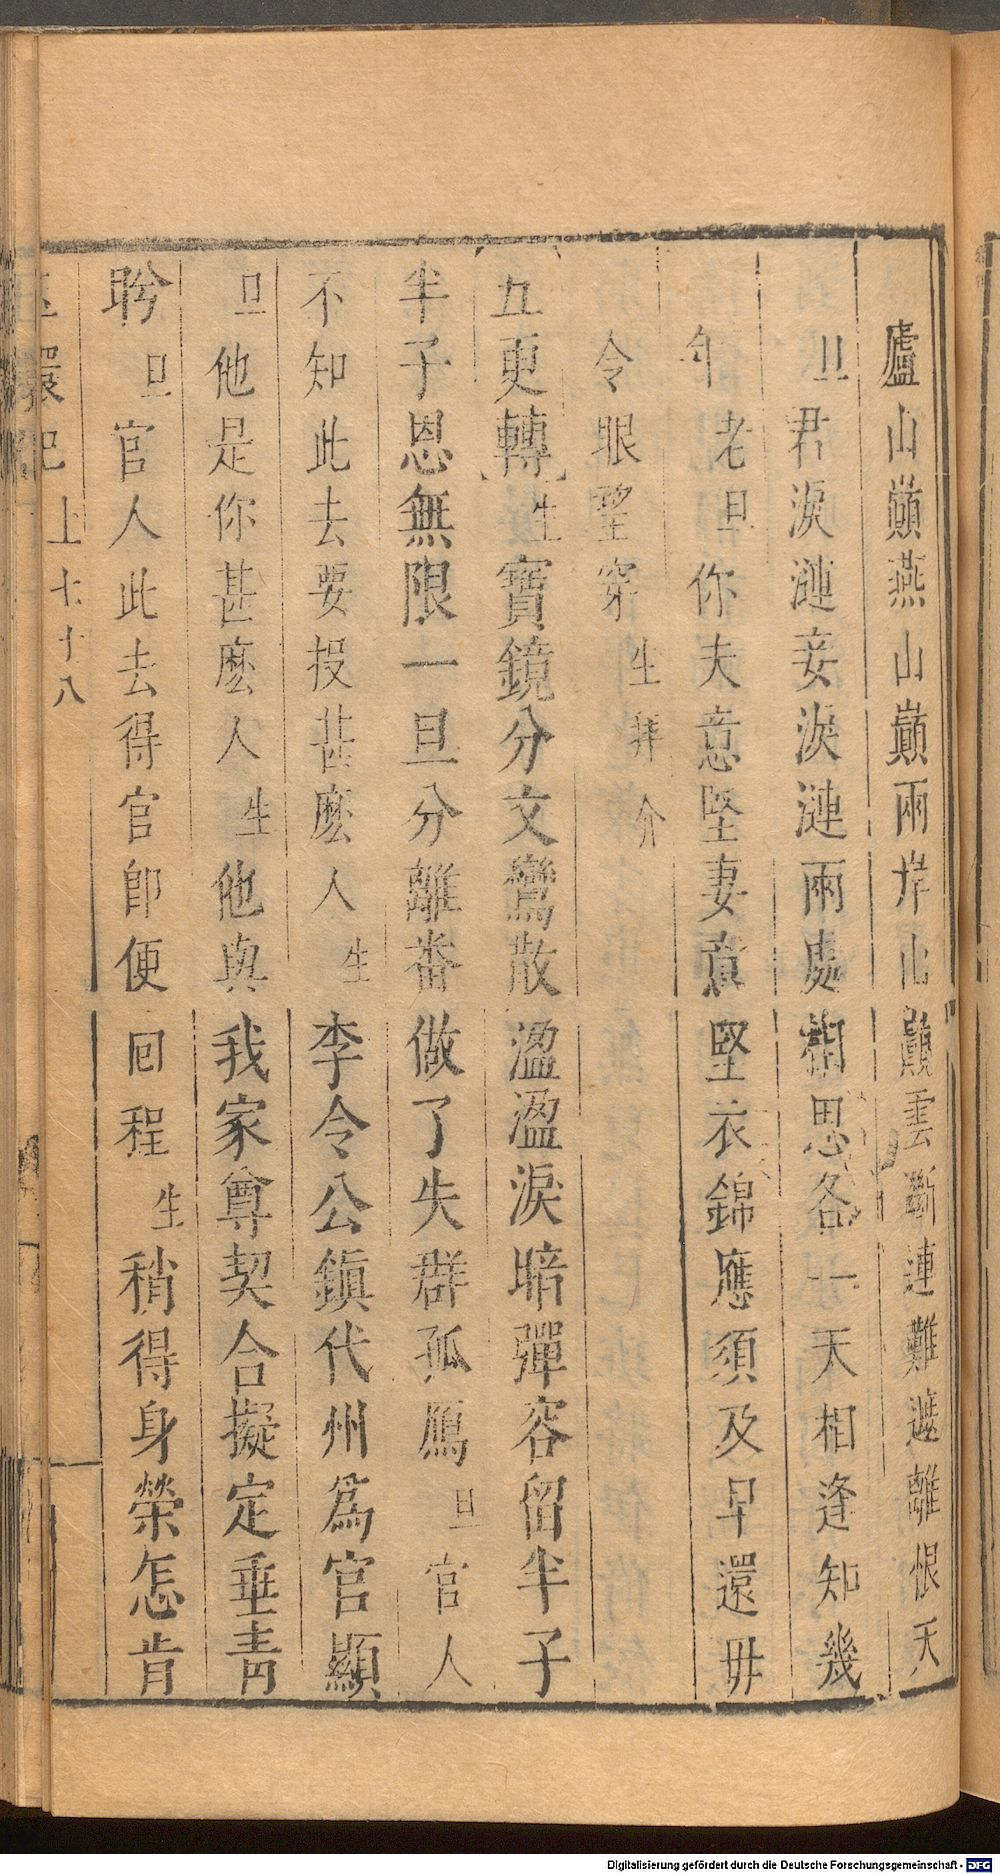 廬山巔燕山巔兩岸山巔雲斷連難遞離恨天
旦君淚漣妾淚漣兩處相思各一天相逢知幾
年老旦你夫意堅妻意堅衣錦應須及早還毋
令眼望穿生拜介
五更轉生寶鏡分文鸞散溋溋淚暗彈容留半子
半子恩無限一旦分離番做了失群孤鴈旦官人
不知此去要投甚麽人生李令公鎮代州為官顯
旦他是你甚麽人生他與我家尊契合擬定垂青
盻旦官人此去得官即便回程生稍得身榮怎肯
玉環記上七十八
Digitalisierung gefördert durch die Deutsche Forschungsgemeinschaft - DFG